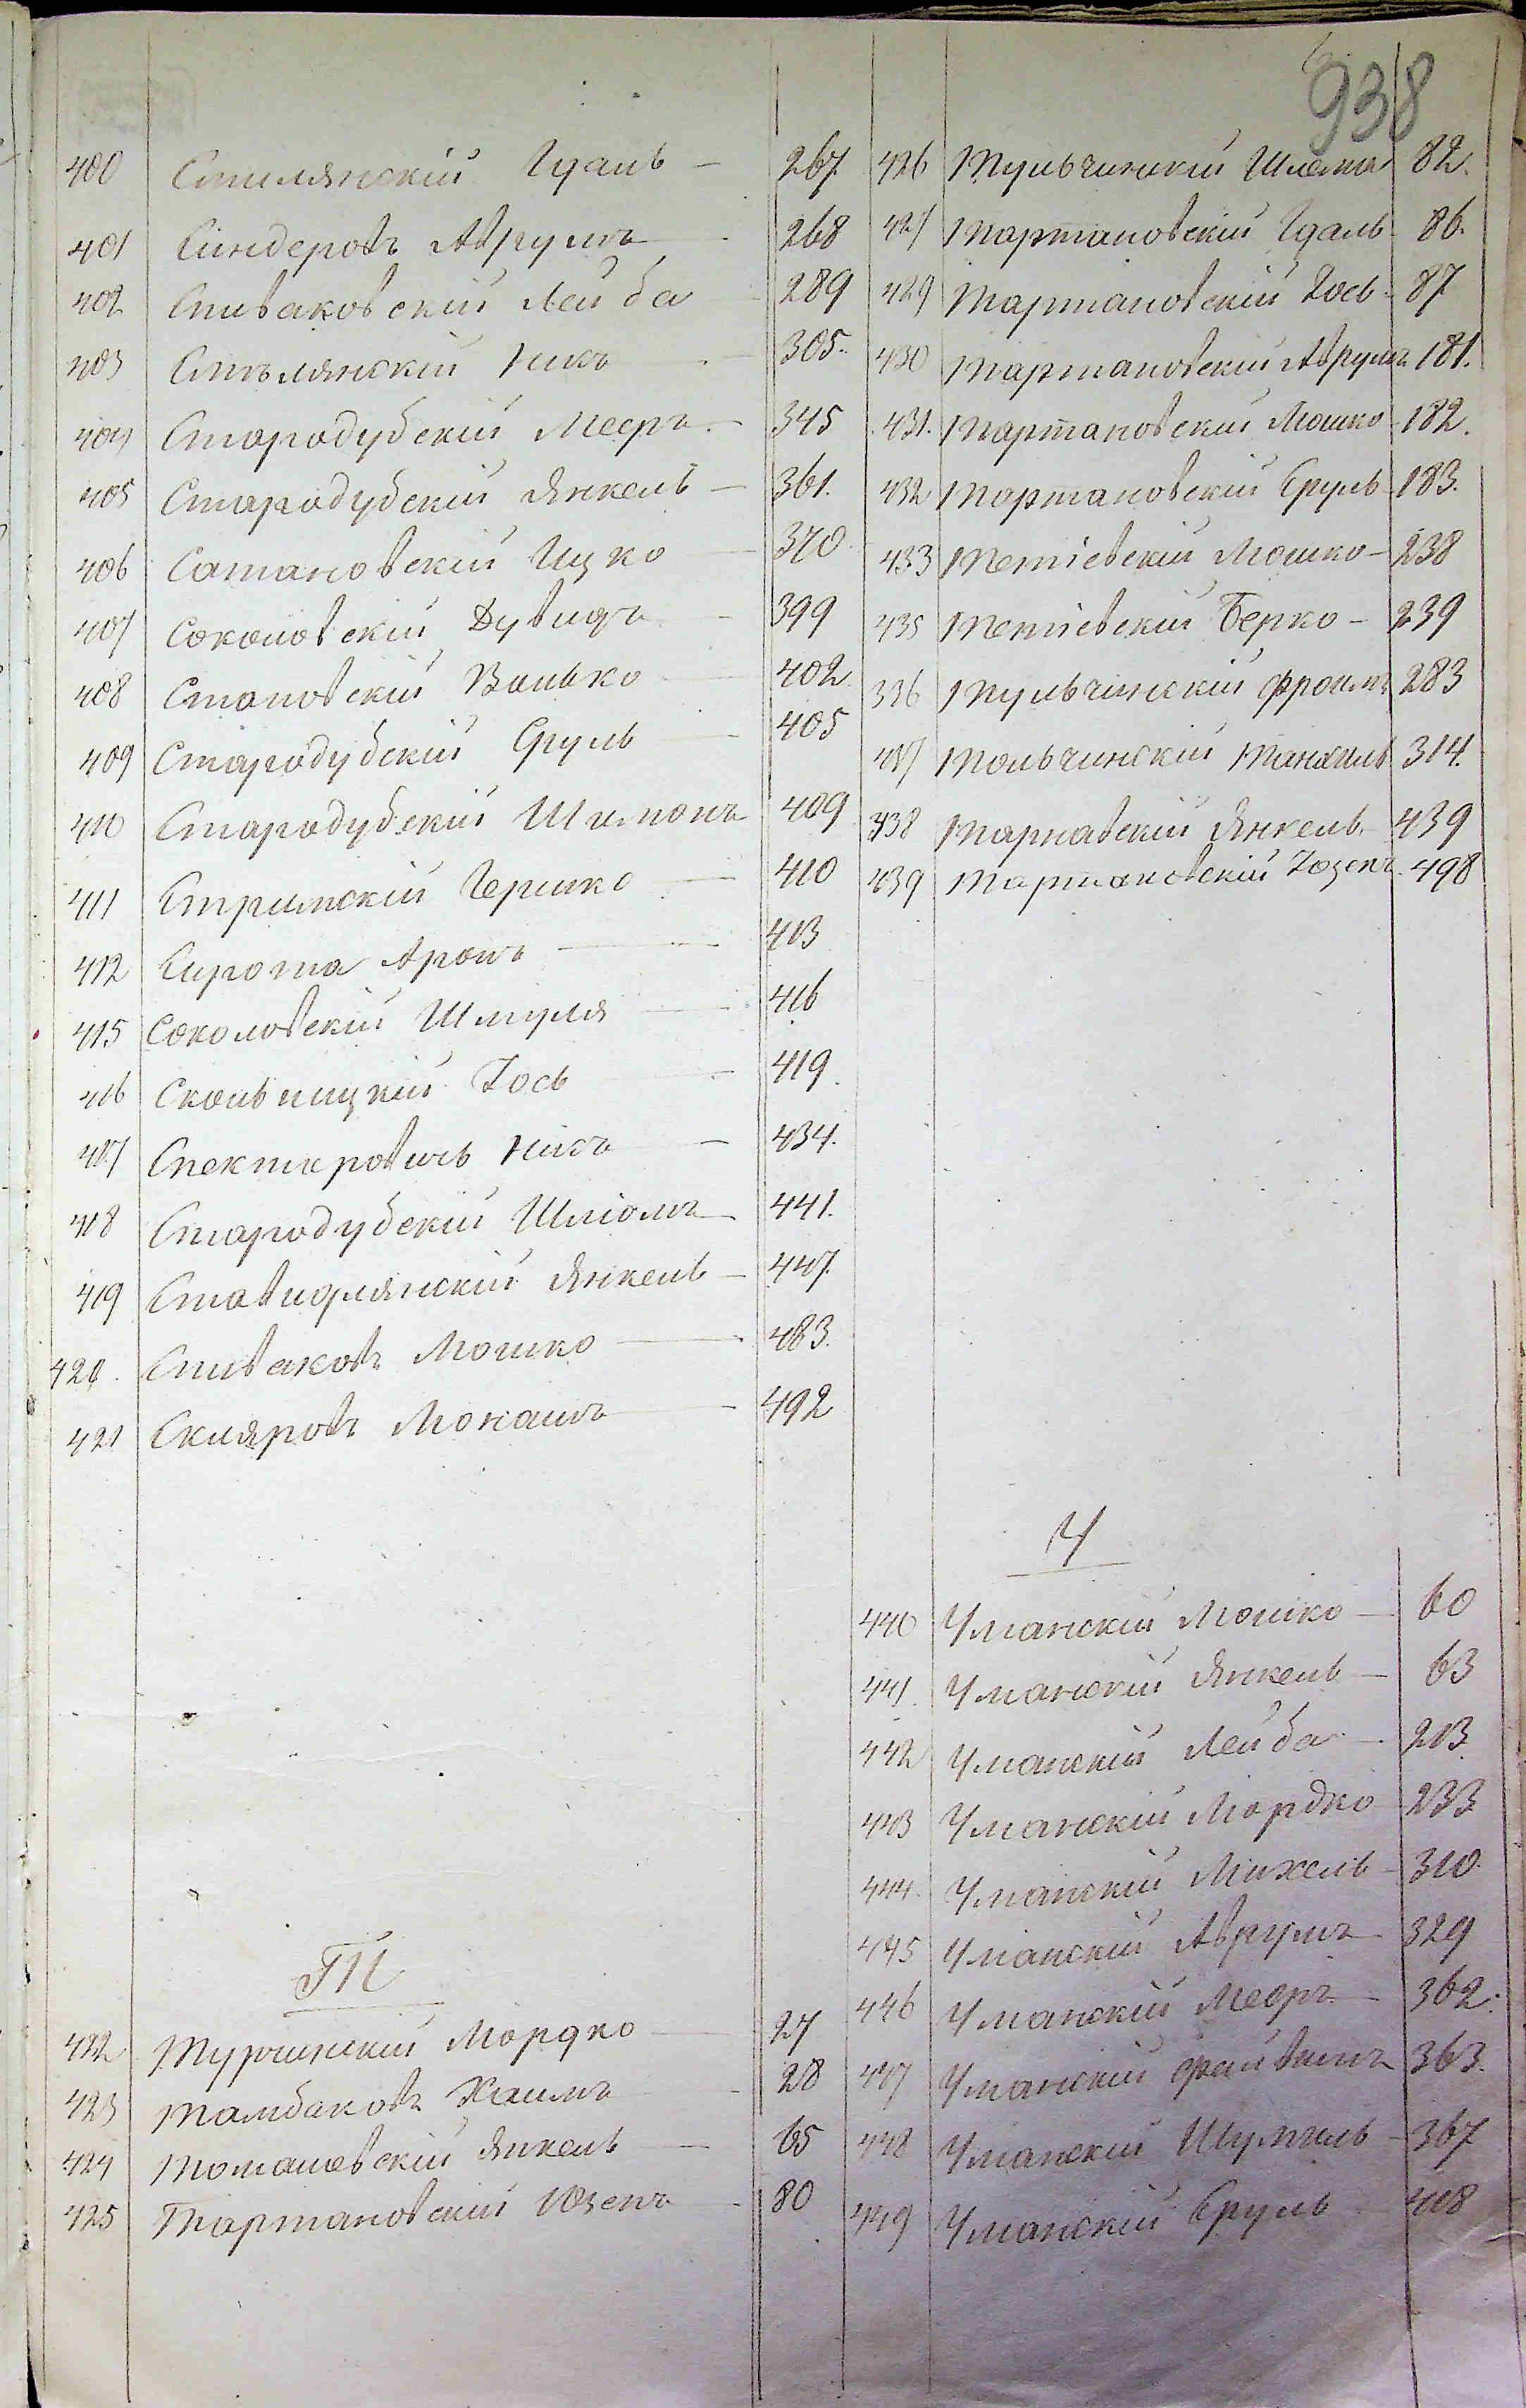 938
400 Смилянскій Гдаль — 267.
401 Синдеровъ Аврумъ — 268
402 Спиваковскій Лейба — 289
403 Смѣлянскій — 305.
404 Стародубскій Мееръ — 345
405 Стародубскій Янкель — 361.
406 Сатановскій Ицко — 370
407 Соколовскій Дувидъ — 399
408 Становскій Волько — 402
409 Стародубскій Сруль — 405
410 Стародубскій Шимонъ 409
411 Стримскій Гершко — 410
412 Сирота Аронъ — 413
415 Соколовскій Шмуля — 416
416 Сквы Іось — 419
417 Спектеровичь — 434.
418 Стародубскій Шліома — 441.
419 Ставидлянскій Янкель — 447.
420. Спиваковъ Мошко — 483.
421 Скляровъ Монашъ — 492
Т
422 Турчинскій Мордко — 27
423 Тамбаковъ Хаимъ — 28
424 Томашевскій Янкель — 65
425 Тартановскій Юзепъ — 80
426 Тульчинскій Шлема 82.
427 Тартановскій Гдаль 86.
429 Тартановскій Іось 87
430 Тартановскій Аврумъ 181.
431. Тартановскій Мошко 182.
432 Тартановскій Сруль 183.
433 Тетіевскій Мошко — 238
435 Тетіевскій Берко — 239
336 Тульчинскій Фроимъ 283
437 Тольчинскій 314.
438 Тарнавскій Янкель 439
439 Тартановскій Іозепъ 498
У
440 Уманскій Мошко — 60
441. Уманскій Янкель — 63
442 Уманскій Лейба — 203
443 Уманскій Мордко 233
444. Уманскій Михель — 310.
445 Уманскій Аврумъ — 329
446 Уманскій Мееръ — 362.
447 Уманскій Файвишъ 363.
448 Уманскій Шумиль — 367
449 Уманскій Сруль — 408